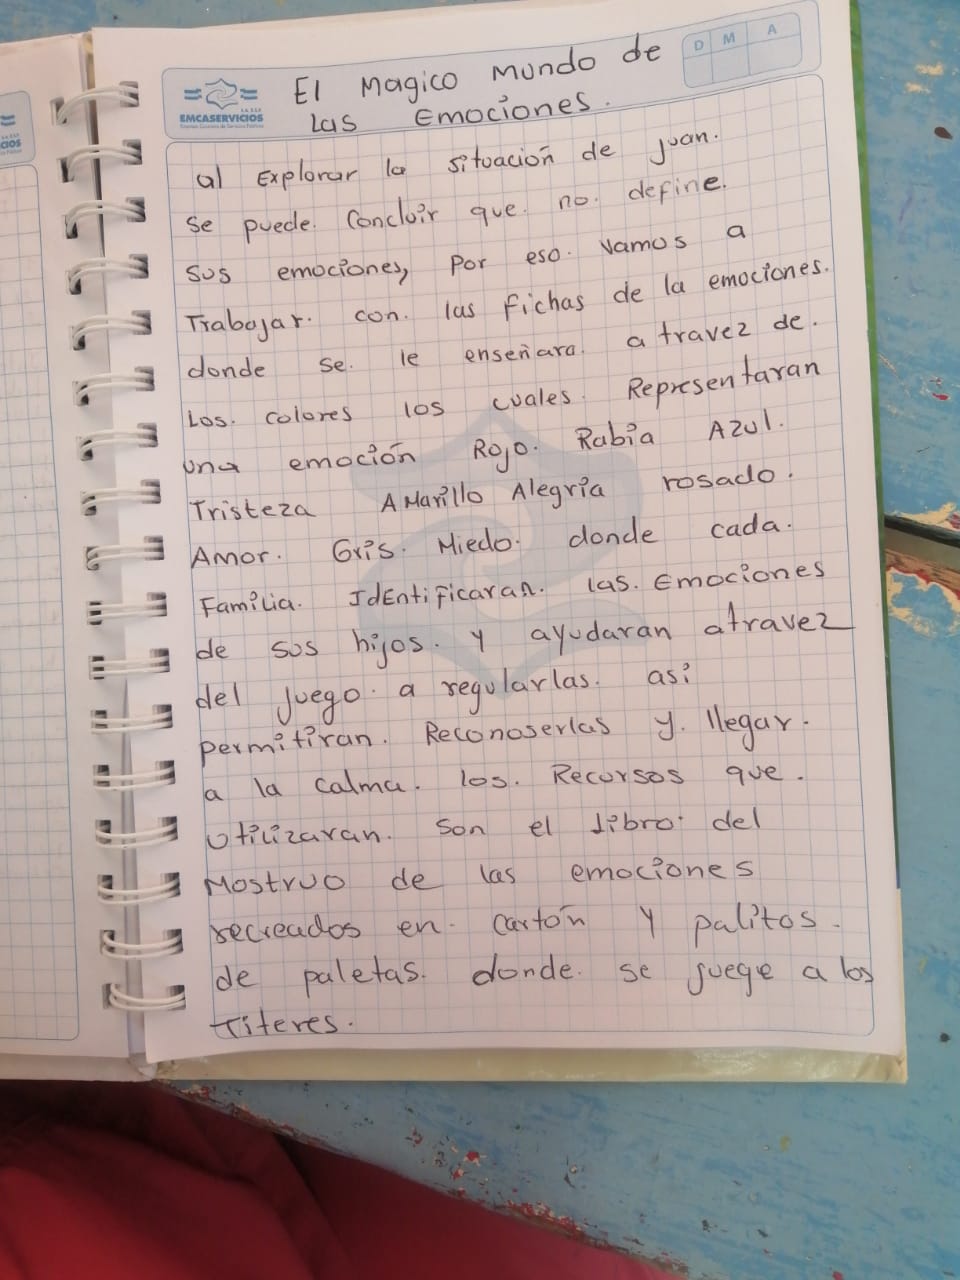 D M A
EMCASERVICIOS
El Magico Mundo de
Las Emociones.
al Explorar la situación de juan.
se puede. Concluir que. no. define.
sus emociones, por eso. vamos a
Trabajar. con. las fichas de la emociones.
donde se. le enseñara. a travez de.
Los. colores los cuales. Representaran
una emoción Rojo. Rabia Azul.
Tristeza Amarillo Alegria rosado.
Amor. Gris. Miedo. donde cada.
Familia. Identificaran. las. Emociones
de sus hijos. y ayudaran atravez
del juego. a regularlas. asi
permitiran. Reconoserlas y. llegar.
a la calma. los. Recursos que.
utilizaran. son el libro. del
Mostruo de las emociones
recreados en. cartón y palitos.
de paletas. donde. se juege a los
Titeres.